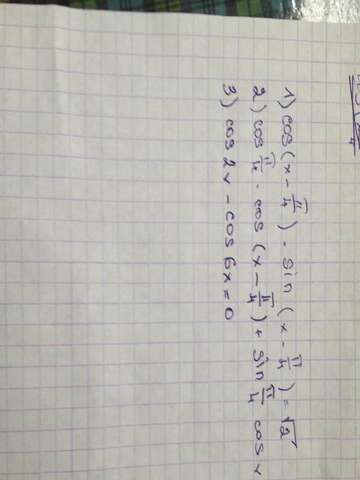 1) cos(x - π/4) - sin(x - π/4) = √2
2) cos π/4 · cos (x - π/4) + sin π/4 cos x
3) cos 2x - cos 6x = 0